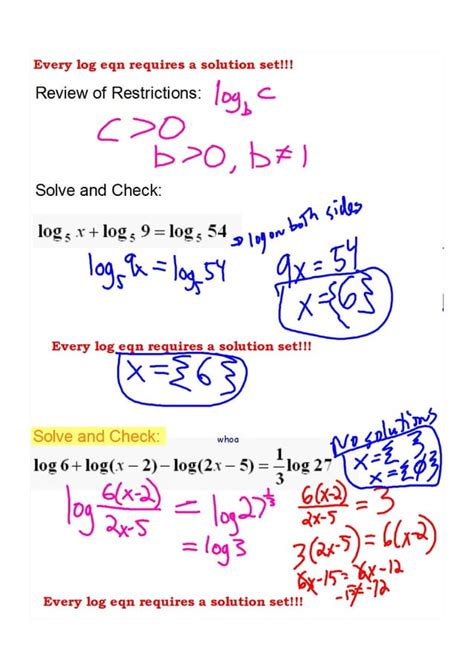 Every log eqn requires a solution set!!!
Review of Restrictions: log_b c
c>0
b>0, b≠1
Solve and Check:
log₅ x + log₅ 9 = log₅ 54
→ log on both sides
log₅ 9x = log₅ 54
9x = 54
x={6}
Every log eqn requires a solution set!!!
x={6}
Solve and Check:
whoa
No solutions
log 6 + log(x − 2) − log(2x − 5) = 1/3 log 27
x={ }
x={ϕ}
log 6(x-2)/2x-5 = log 27^1/3
= log 3
6(x-2)/2x-5 = 3
3(2x-5) = 6(x-2)
6x-15 = 6x-12
-15 ≠ -12
Every log eqn requires a solution set!!!